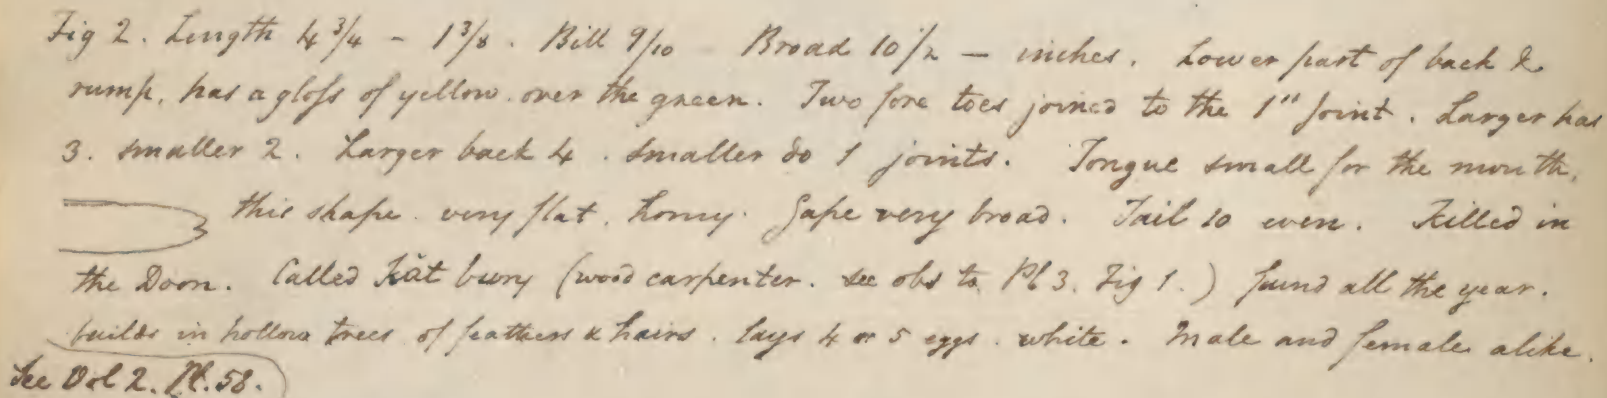 Fig 2. Length 4 3/4 - 1 3/8. Bill 9/10 - Broad 10 1/2 — inches. Lower part of back &
rump, has a gloss of yellow over the green. Two fore toes joined to the 1st joint. Larger has
3. smaller 2. Larger back 4. smaller do 1 joints. Tongue small for the mouth,
this shape. very flat. horny. Gape very broad. Tail 10 even. Killed in
the Doon. Called Kāt (wood carpenter. see obs to Pl 3. Fig 1.) found all the year.
builds in hollow trees of feathers & hairs. lays 4 or 5 eggs. white. Male and female alike.
See Vol 2. Pl. 58.